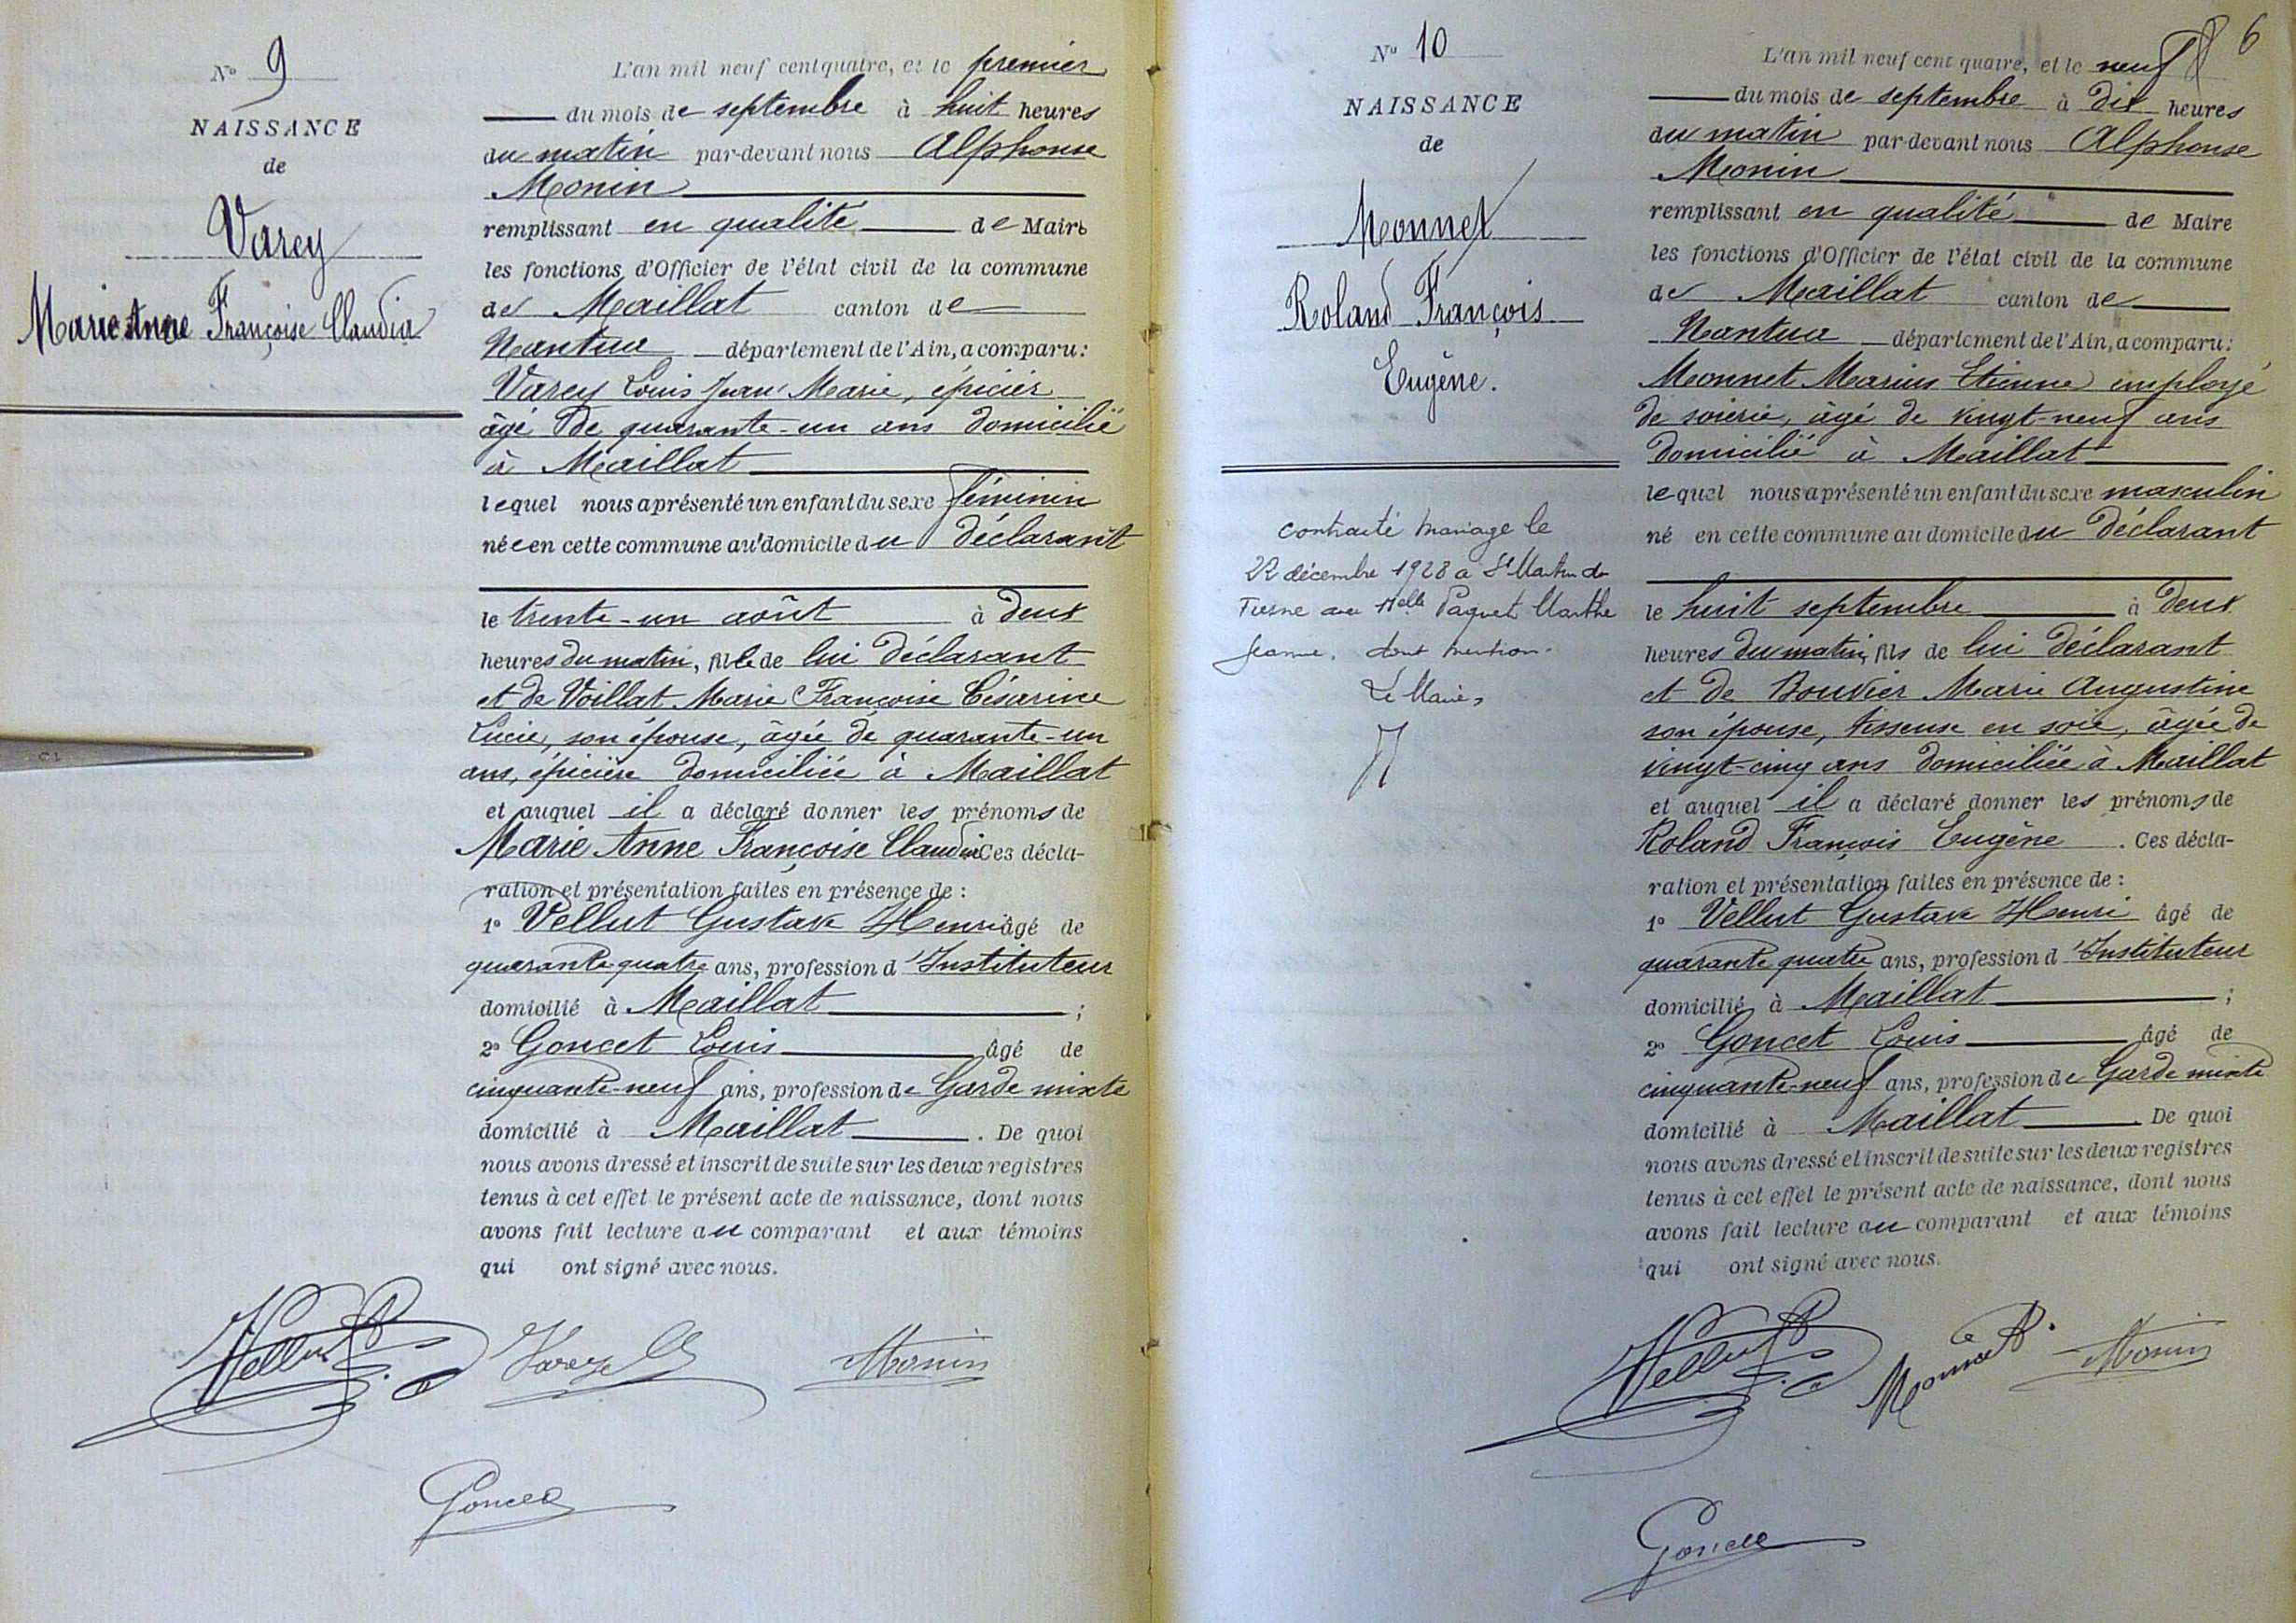 N° 9
NAISSANCE
de
Varey
Marie Anne Françoise Claudia
L'an mil neuf cent quatre, et le premier
du mois de septembre à huit heures
du matin par-devant nous Alphonse
Monin
remplissant en qualité de Maire
les fonctions d'Officier de l'état civil de la commune
de Maillat canton de
Nantua département de l'Ain, a comparu :
Varey Louis Jean Marie, épicier
âgé de quarante-un ans domicilié
à Maillat
lequel nous a présenté un enfant du sexe féminin
née en cette commune au domicile du déclarant
le trente-un août à deux
heures du matin, fille de lui déclarant
et de Voillat Marie Françoise Césarine
Lucie, son épouse, âgée de quarante-un
ans, épicière domiciliée à Maillat
et auquel il a déclaré donner les prénoms de
Marie Anne Françoise Claudia Ces décla-
ration et présentation faites en présence de :
1° Vellut Gustave Henri âgé de
quarante quatre ans, profession d'Instituteur
domicilié à Maillat ;
2° Goncet Louis âgé de
cinquante-neuf ans, profession de Garde mixte
domicilié à Maillat . De quoi
nous avons dressé et inscrit de suite sur les deux registres
tenus à cet effet le présent acte de naissance, dont nous
avons fait lecture au comparant et aux témoins
qui ont signé avec nous.
Vellut Varey Monin
Goncet
6
N° 10
NAISSANCE
de
Monnet
Roland François
Eugène.
contracté mariage le
22 décembre 1928 à St Martin du
Fresne avec Melle Paquet Marthe
Jeanne. dont mention.
Le Maire,
L'an mil neuf cent quatre, et le neuf
du mois de septembre à dix heures
du matin par-devant nous Alphonse
Monin
remplissant en qualité de Maire
les fonctions d'Officier de l'état civil de la commune
de Maillat canton de
Nantua département de l'Ain, a comparu :
Monnet Marius Etienne employé
de soierie, âgé de vingt-neuf ans
domicilié à Maillat
lequel nous a présenté un enfant du sexe masculin
né en cette commune au domicile du déclarant
le huit septembre à deux
heures du matin, fils de lui déclarant
et de Bouvier Marie Augustine
son épouse, tisseuse en soie, âgée de
vingt-cinq ans domiciliée à Maillat
et auquel il a déclaré donner les prénoms de
Roland François Eugène . Ces décla-
ration et présentation faites en présence de :
1° Vellut Gustave Henri âgé de
quarante quatre ans, profession d'Instituteur
domicilié à Maillat ;
2° Goncet Louis âgé de
cinquante-neuf ans, profession de Garde mixte
domicilié à Maillat . De quoi
nous avons dressé et inscrit de suite sur les deux registres
tenus à cet effet le présent acte de naissance, dont nous
avons fait lecture au comparant et aux témoins
qui ont signé avec nous.
Vellut Monnet Monin
Goncet